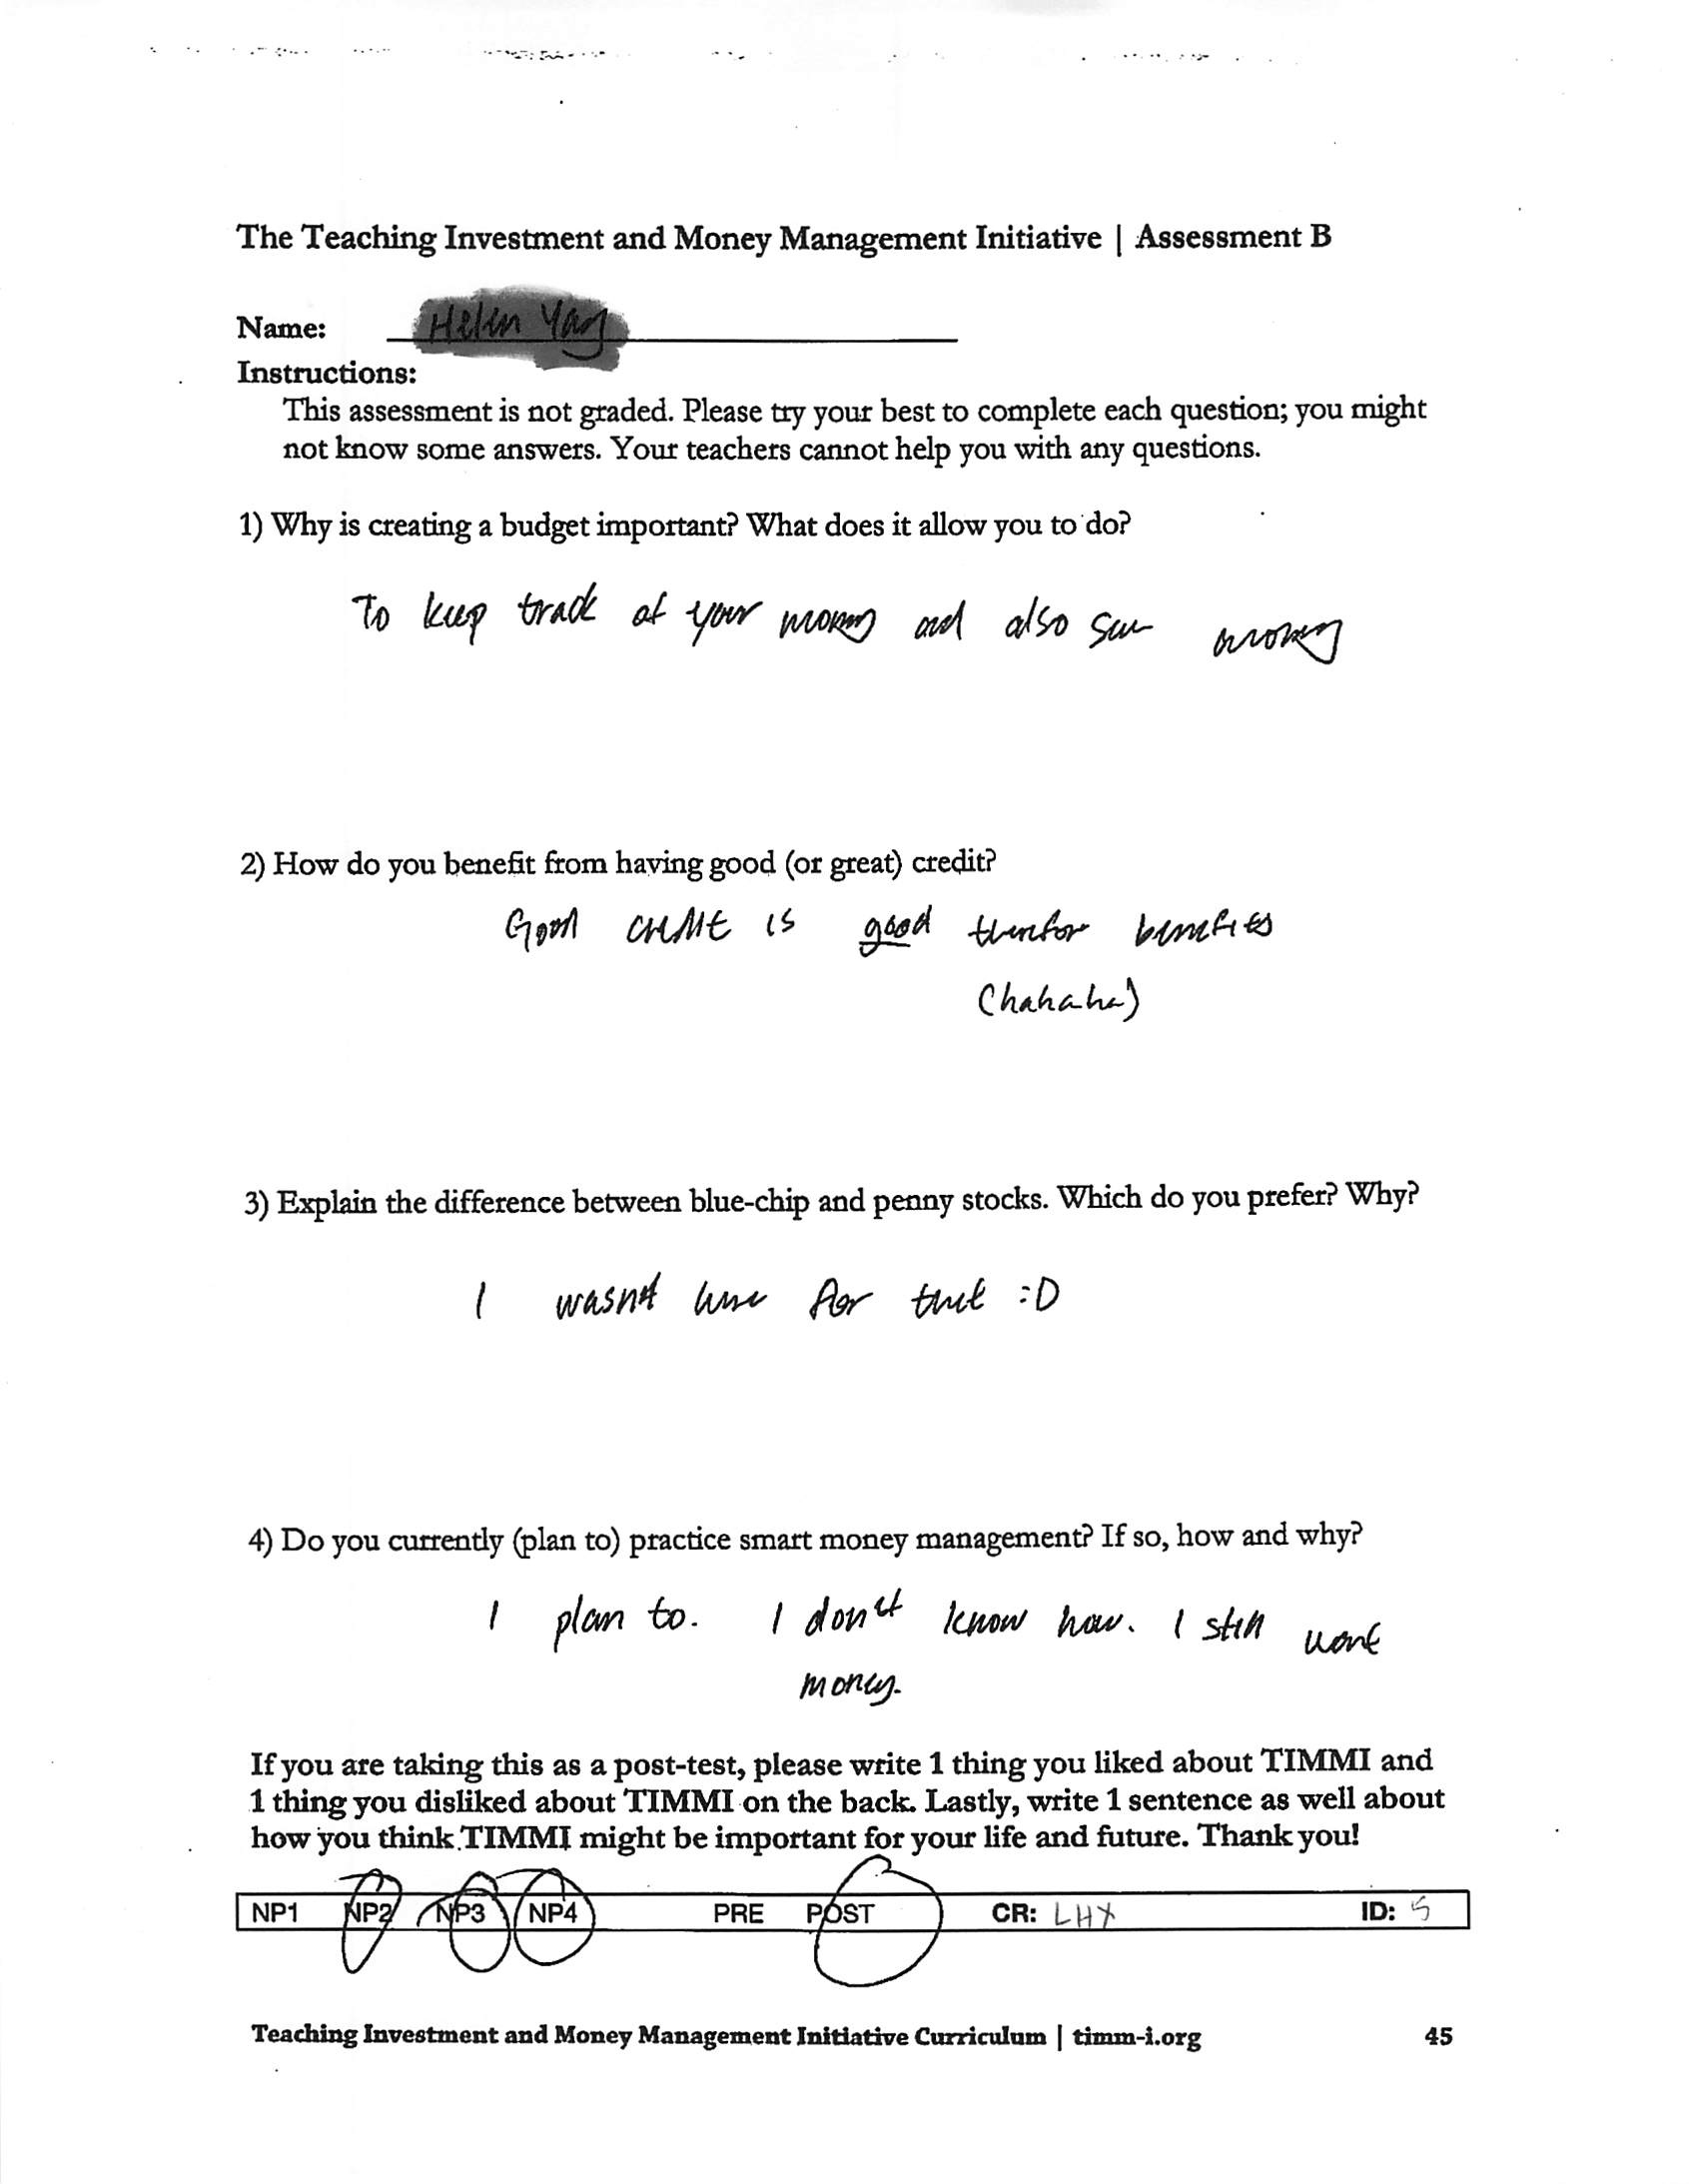 The Teaching Investment and Money Management Initiative | Assessment B
Name:
Instructions:
This assessment is not graded. Please try your best to complete each question; you might
not know some answers. Your teachers cannot help you with any questions.
1) Why is creating a budget important? What does it allow you to do?
To keep track of your money and also save money
2) How do you benefit from having good (or great) credit?
Good credit is good therefor benefits
(hahaha)
3) Explain the difference between blue-chip and penny stocks. Which do you prefer? Why?
I wasn't here for that :D
4) Do you currently (plan to) practice smart money management? If so, how and why?
I plan to. I don't know how. I still want
money.
If you are taking this as a post-test, please write 1 thing you liked about TIMMI and
1 thing you disliked about TIMMI on the back. Lastly, write 1 sentence as well about
how you think TIMMI might be important for your life and future. Thank you!
NP1 NP2 NP3 NP4 PRE POST CR: LHX ID: 5
Teaching Investment and Money Management Initiative Curriculum | timm-i.org 45